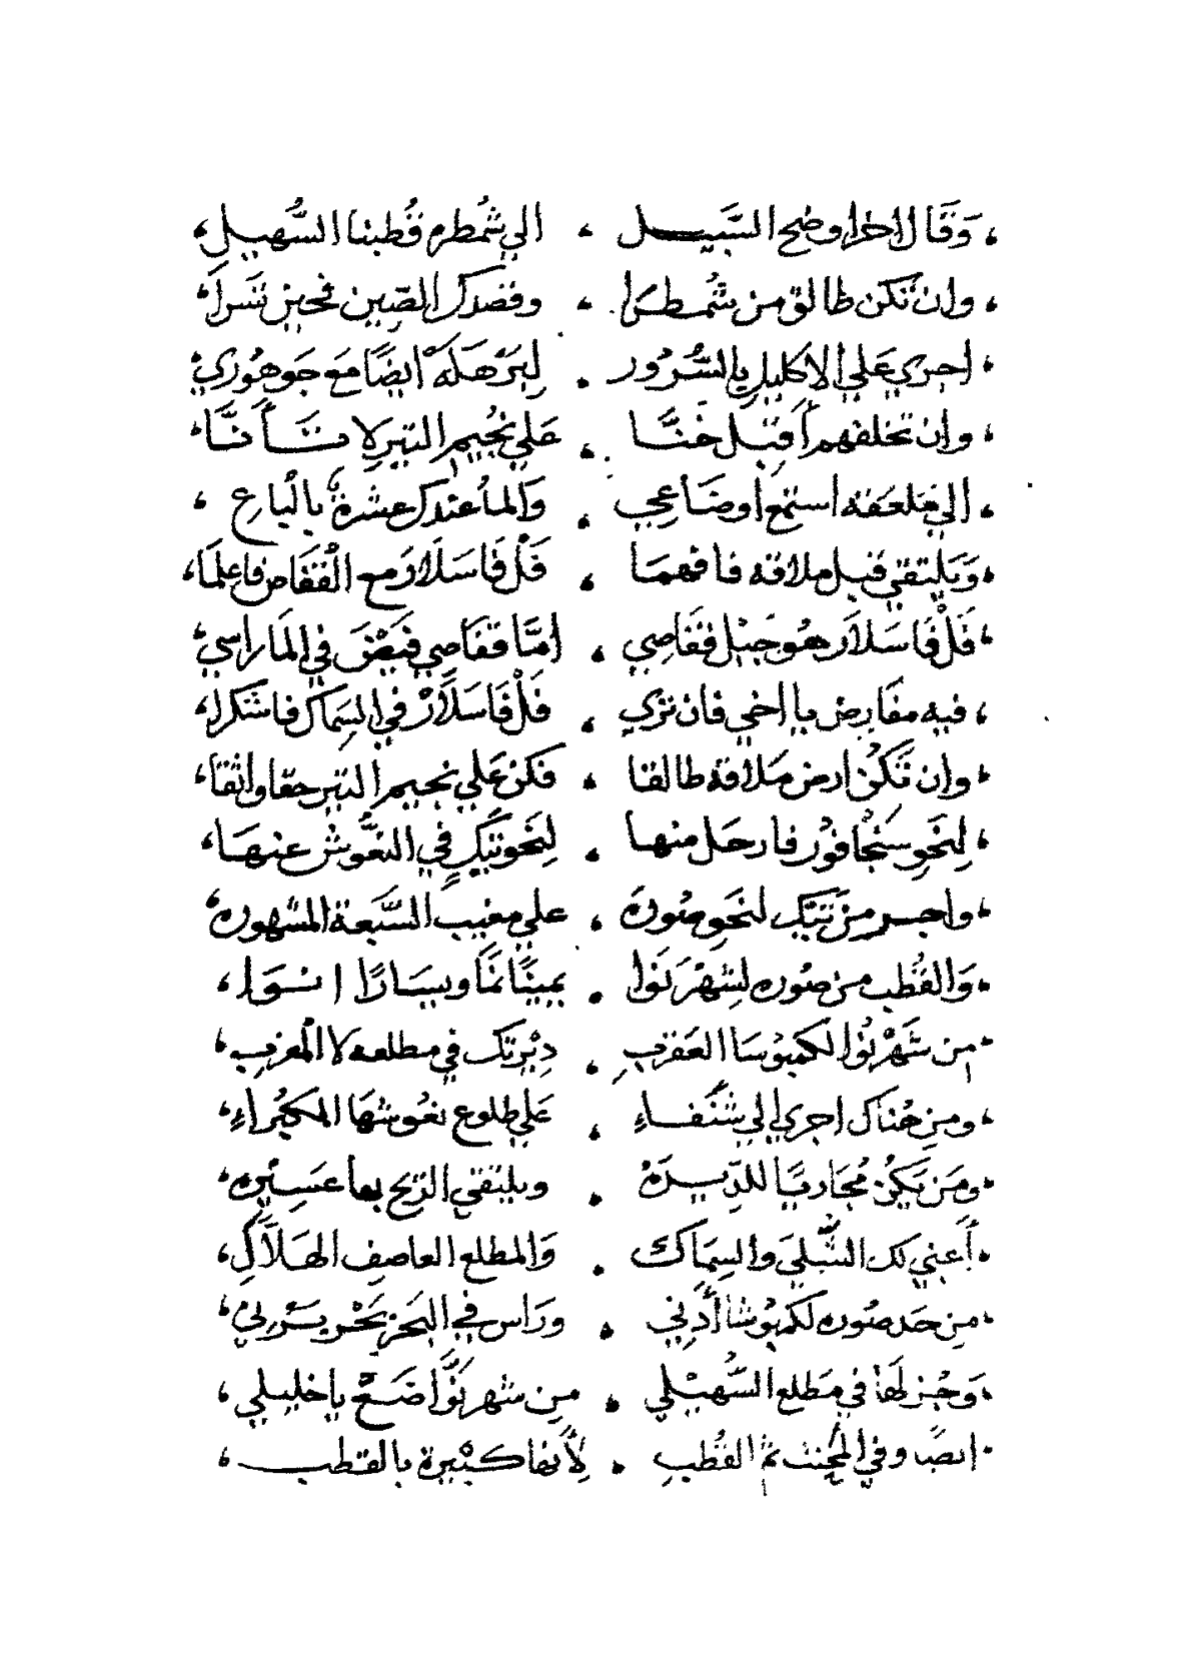 وَقَالَ اخرا وضح السَّبيل ، الي شُمُطره قُطبنا السُّهيلِ
وان تَكن طالق من شُمُطرَا ، وقصدك الصّين فحين تَسرا
اجري عَلي الاكليلِ يا السُّرُور ، لِبَرْهَلَهْ ايضًا مَع جَوهُوريْ
وان تخلفهم أَقبل خَنَّا ، عَلي نجُيم التيرِ لا تتَأنَّا
الي استمع اوضَاعِي ، وَالمأ عندك عشرةٌ بالْباعِ
وَيَلتقي قبل ملاقه فافهمَا ، فَلْفَاسَلَارَ مع الْقفَاص فاعِلمَا
فَلْفَاسَلاَر هُو جَبْل قفَاصِي ، امَّا قفَاصي فبَعْضَ في المَاراسي
فيه مفَارِض يا اخي فان تري ، فَلْفَاسَلَارْ في السِمَاك فاشكرا
وان تَكُنْ ارض مَلاقة طالقا ، فكن عَلي نجيم التير حقا واثقا
لِنَحوِ سَنْجَافُوْر فارحَل منها ، لِنَحو تيَكٍ في النعُوش عنهَا
واجر مِن تَيَك لنَحوِ صُورَه ، علي مغيب السَّبعة المشهوره
وَالقُطب من صُوره لِشهْرَنَوَا ، يمينًا نمًا ويسَارًا اسْوَا
من شَهْرنُوا لكمبوُسَا العَقربِ ، دِيْرتَك في مطلعه لا الْمغربِ
ومن هُناك اجري الي شَنْفَاءِ ، عَلي طلوع نعُوشهَا الكبُراءِ
ومَن يَكُن مُجَاريًا للدِّيرَهْ ، ويلتقي الرّيح بها عَسِيْره
أَعني لك السُّبليَ والسِمَاك ، وَالمطلع العاصِف الهَلَاّكِ
مِن حَد صُوره لكمبُوْشا أَدِني ، ورَاس في البَحر بَحْر يَرْلِيْ
وَجُز لهَا في مَطلع السُّهيْلي ، من شهر نَوَّا ضَعْ يا خليلي
ايضًا وفي ثم القُطبِ ، لِأنها كبْيرة بالقطب